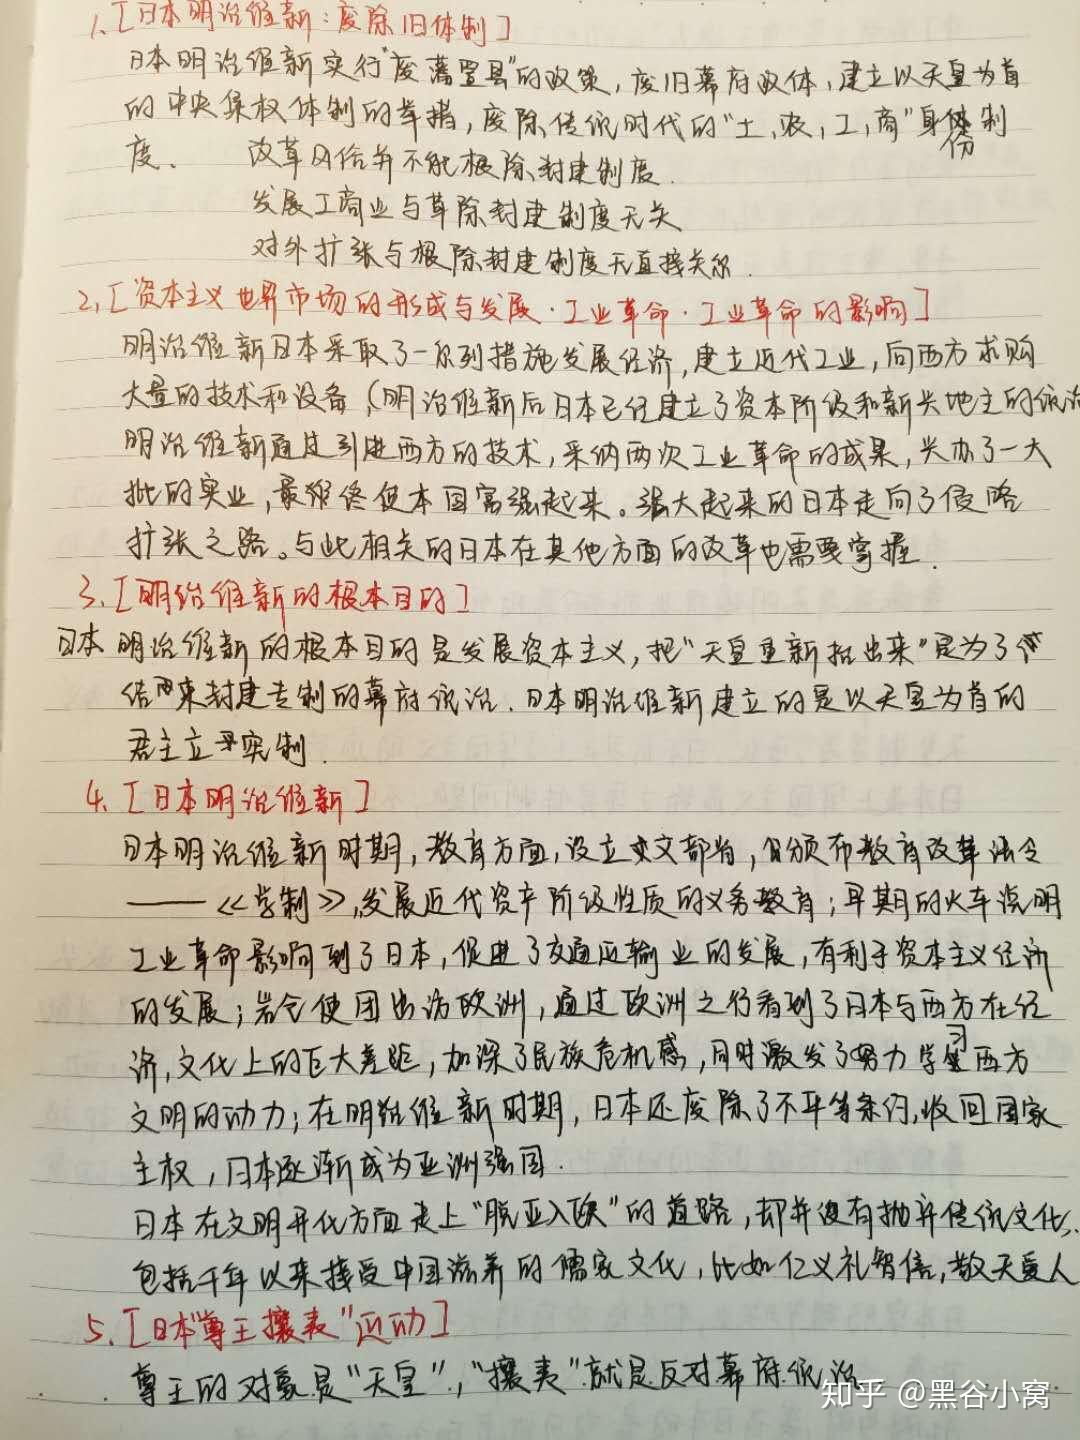 1.[日本明治维新:废除旧体制]
日本明治维新实行"废藩置县"的政策,废旧幕府政体,建立以天皇为首
的中央集权体制的举措,废除传统时代的"士,农,工,商"身份制
度. 改革风俗并不能根除封建制度.
发展工商业与革除封建制度无关
对外扩张与根除封建制度无直接关系.
2.[资本主义世界市场的形成与发展·工业革命·工业革命的影响]
明治维新日本采取了一系列措施发展经济,建立近代工业,向西方求购
大量的技术和设备,(明治维新后日本已经建立了资本阶级和新兴地主的统治
明治维新通过引进西方的技术,采纳两次工业革命的成果,兴办了一大
批的实业,最终使本国富强起来。强大起来的日本走向了侵略
扩张之路。与此相关的日本在其他方面的改革也需要掌握.
3.[明治维新的根本目的]
日本明治维新的根本目的是发展资本主义,把"天皇重新抬出来"是为了
结束封建专制的幕府统治.日本明治维新建立的是以天皇为首的
君主立宪制.
4.[日本明治维新]
日本明治维新时期,教育方面,设立文部省,颁布教育改革法令
——《学制》,发展近代资产阶级性质的义务教育;早期的火车说明
工业革命影响到了日本,促进了交通运输业的发展,有利于资本主义经济
的发展;岩仓使团出访欧洲,通过欧洲之行看到了日本与西方在经
济,文化上的巨大差距,加深了民族危机感,同时激发了努力学习西方
文明的动力;在明治维新时期,日本还废除了不平等条约,收回国家
主权,日本逐渐成为亚洲强国.
日本在文明开化方面走上"脱亚入欧"的道路,却并没有抛弃传统文化.
包括千年以来接受中国滋养的儒家文化,比如仁义礼智信,敬天爱人
5.[日本"尊王攘夷"运动]
尊王的对象是"天皇","攘夷"就是反对幕府统治
知乎 @黑谷小窝